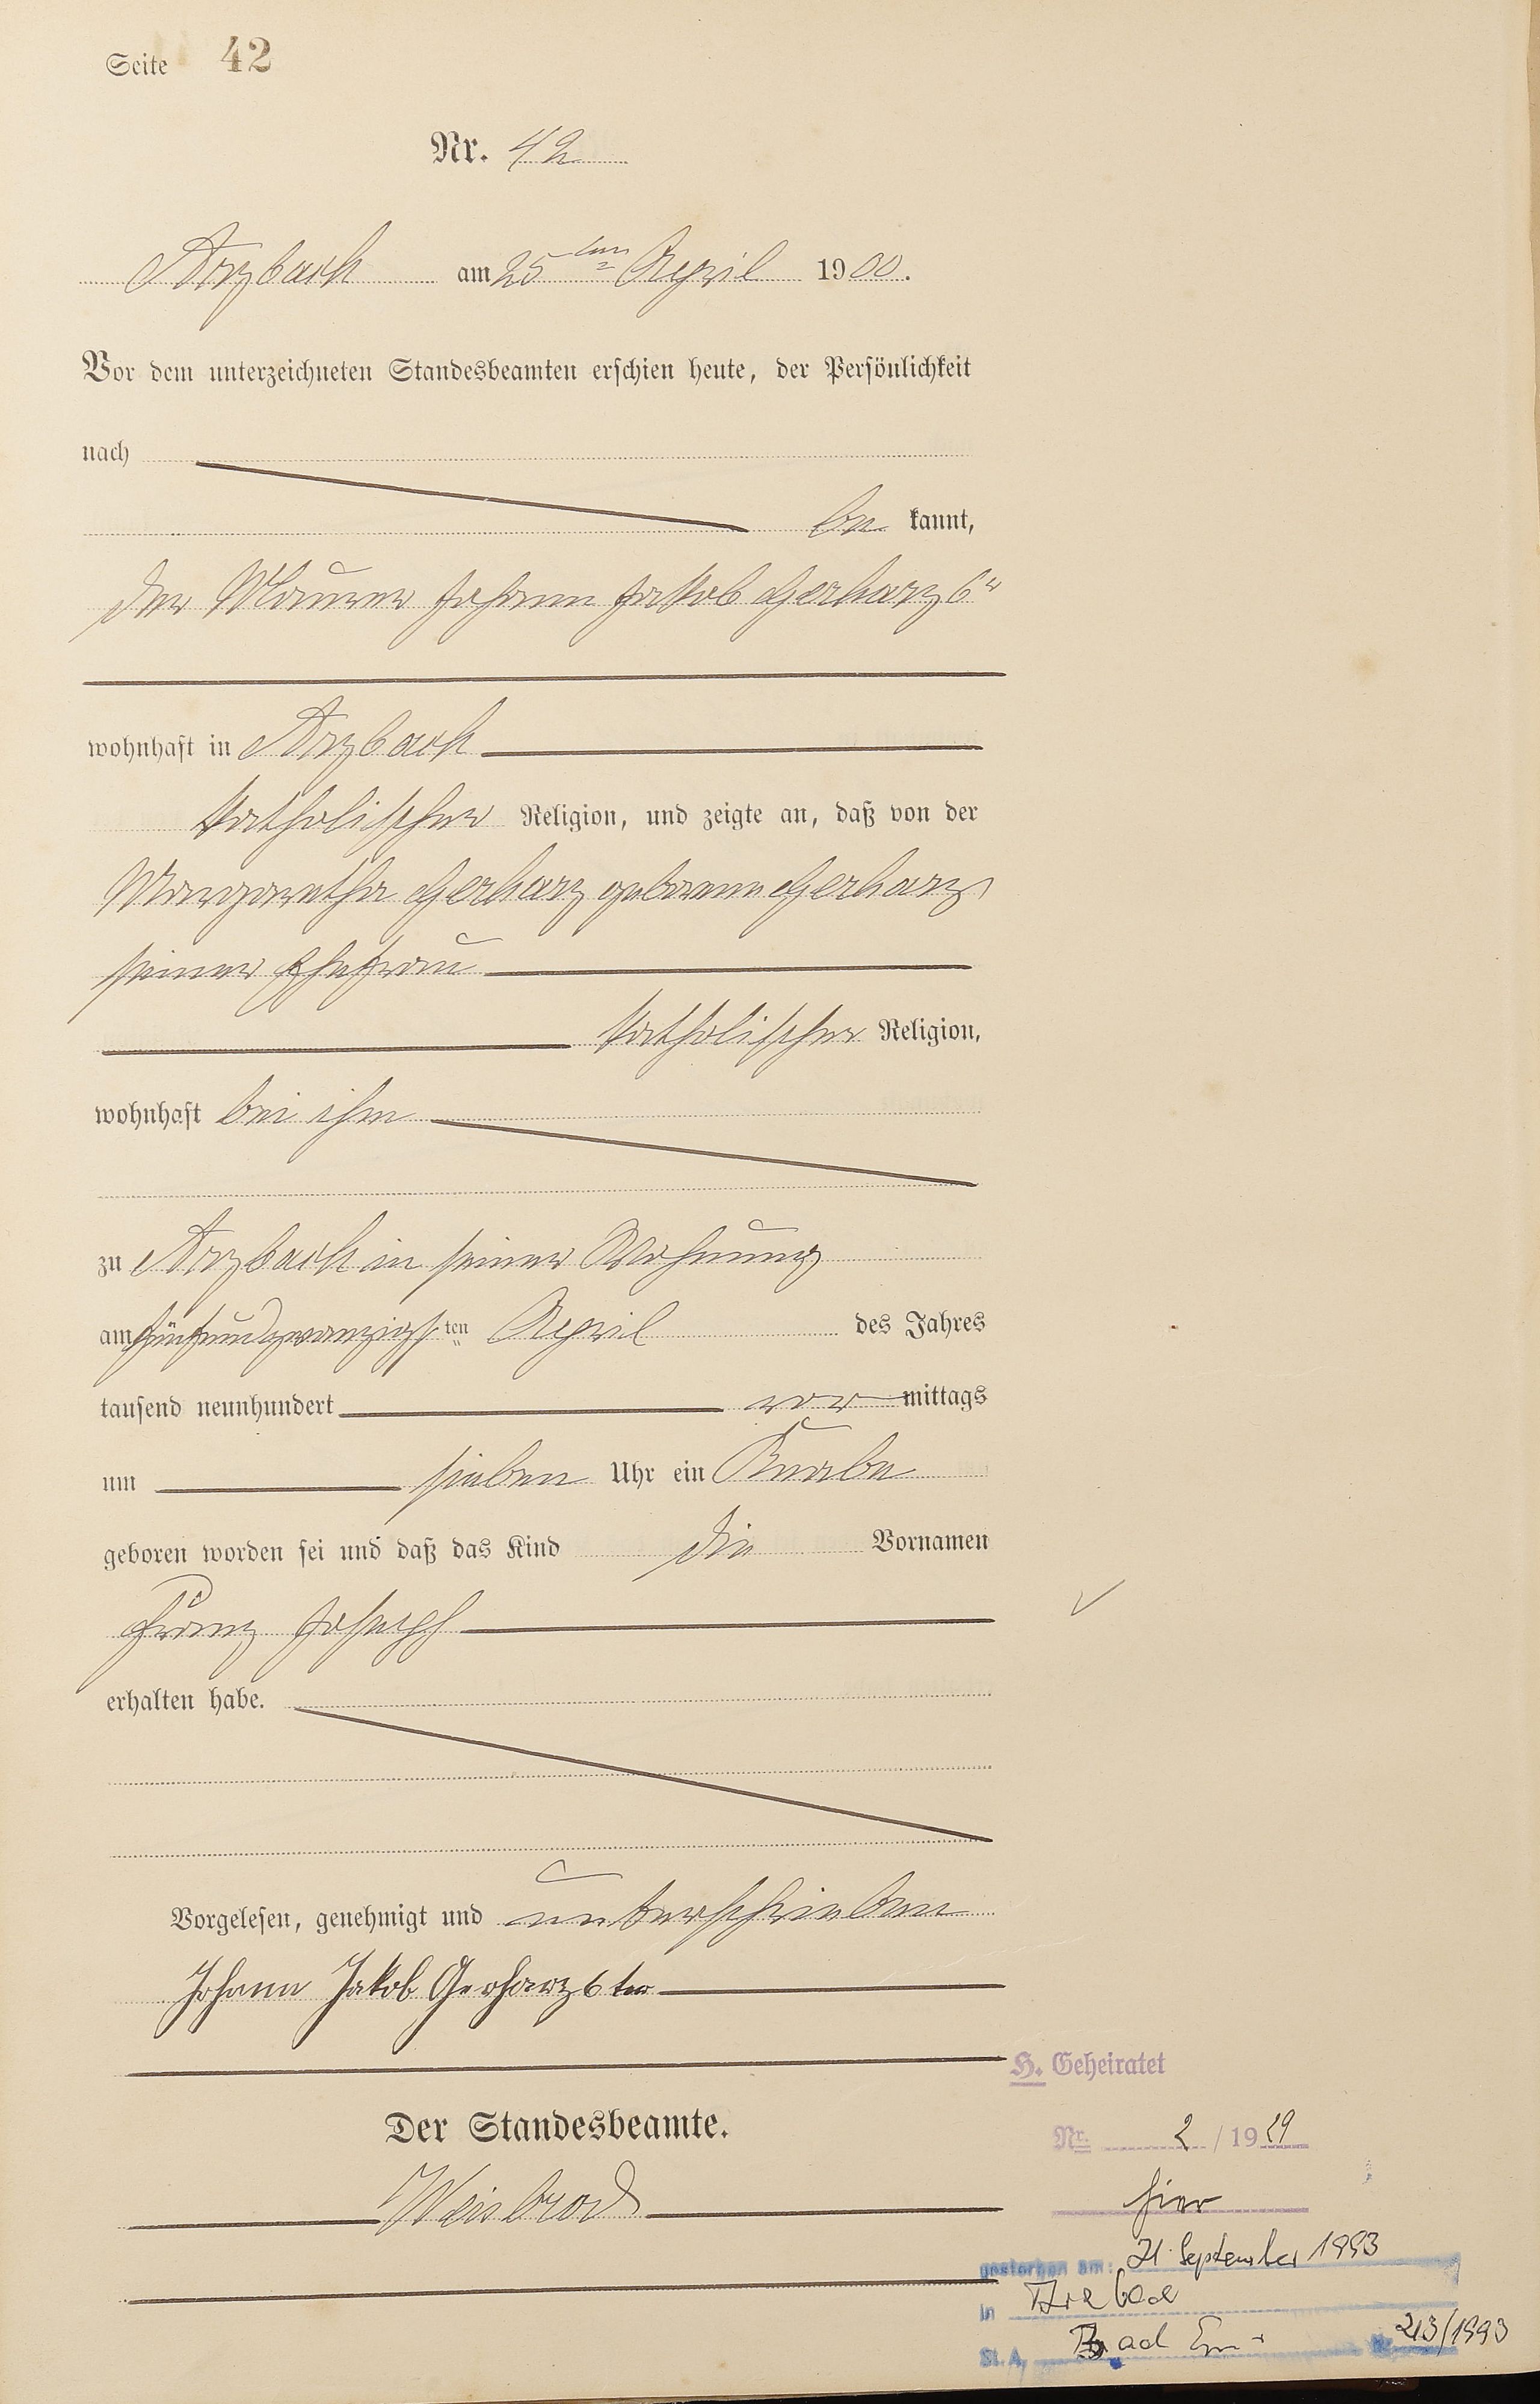 Seite 42
Nr. 42
Arzbach am 25ten April 1900.
Vor dem unterzeichneten Standesbeamten erschien heute, der Persönlichkeit
nach
be kannt,
der Maurer Johann Jakob Gerharz 6r
wohnhaft in Arzbach
katholischer Religion, und zeigte an, daß von der
Margaretha Gerharz geborene Gerharz
seiner Ehefrau
katholischer Religion,
wohnhaft bei ihm
zu Arzbach in seiner Wohnung
am fünfundzwanzigsten April des Jahres
tausend neunhundert vor mittags
um sieben Uhr ein Knabe
geboren worden sei und daß das Kind die Vornamen
Franz Joseph
erhalten habe.
Vorgelesen, genehmigt und unterschrieben
Johann Jakob Gerharz 6ter
H. Geheiratet
Der Standesbeamte.
Nr. 2/1929
Weisbrod
hier
gestorben am: 21. September 1993
in Arzbach
St. A. Bad Ems Nr. 213/1993